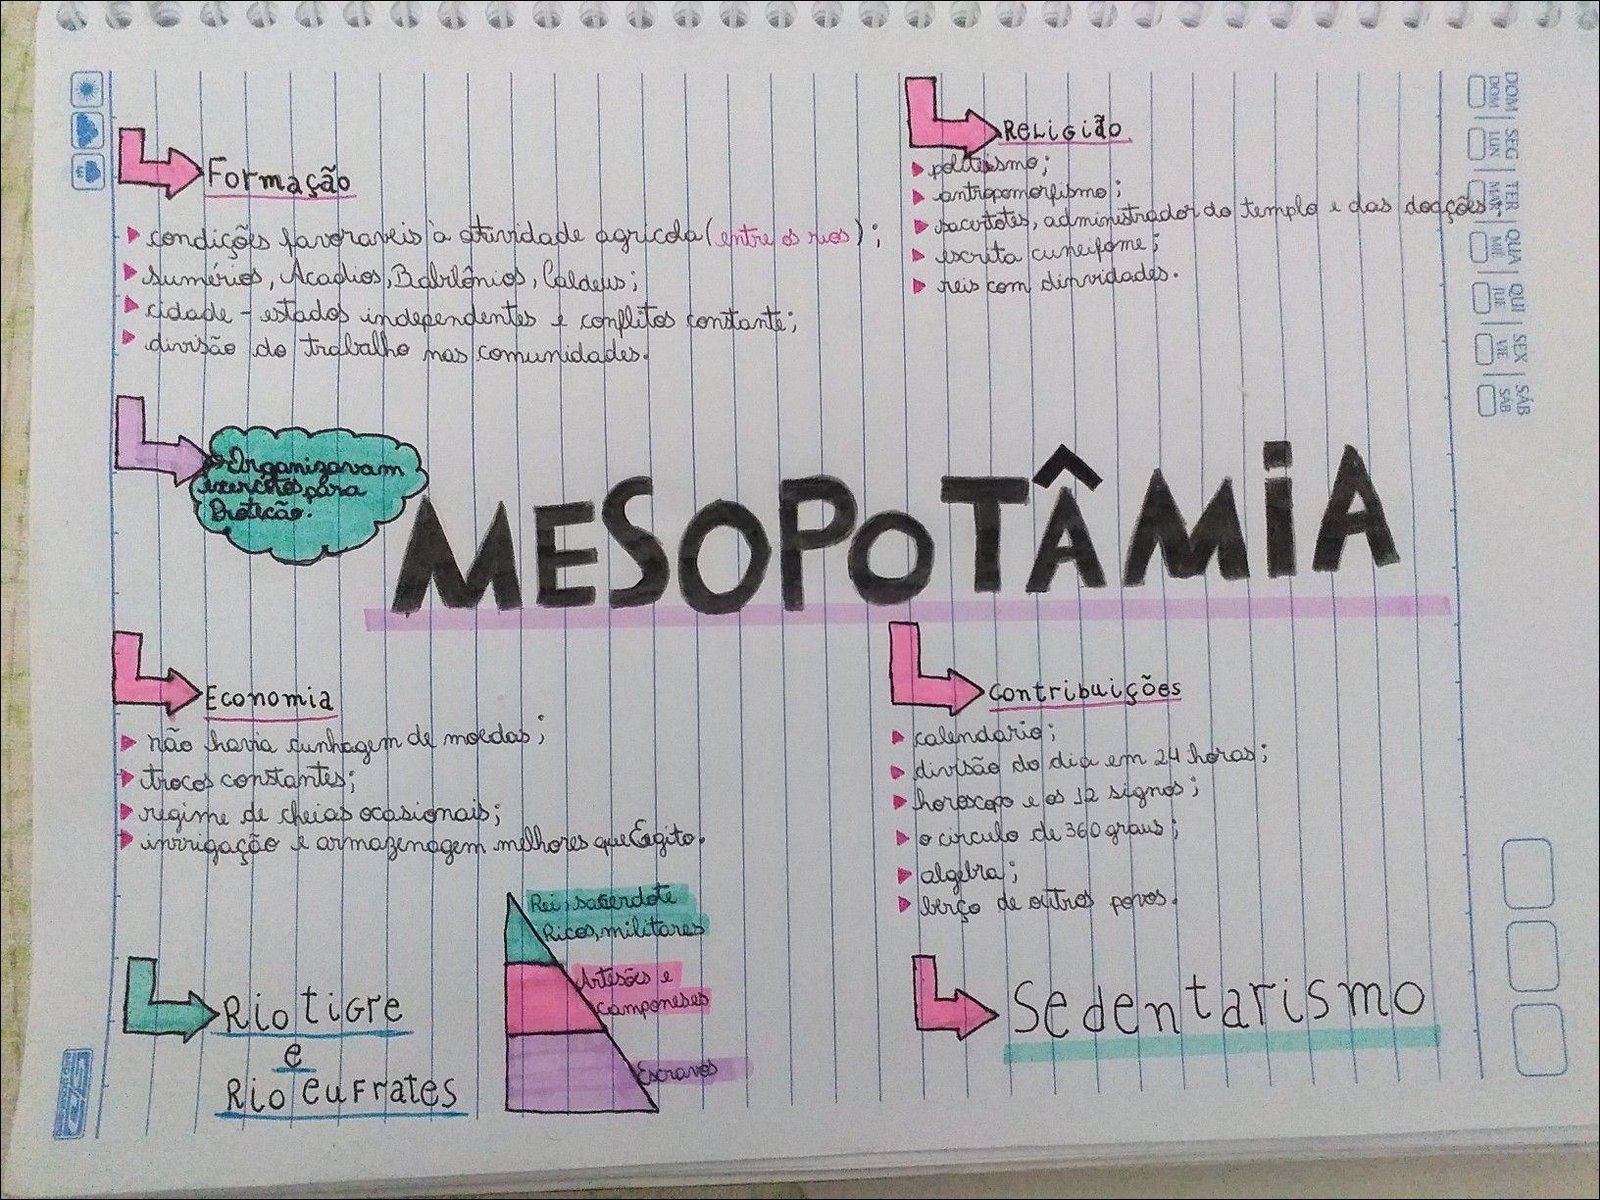 Formação
condições favoraveis à atividade agrícola (entre os rios);
Sumérios, Acadios, Babilônios, Caldeus;
cidade - estados independentes e conflitos constante;
divisão do trabalho nas comunidades.
Religião
politeísmo;
antropomorfismo;
sacertotes, administrador do templo e das doações.
escrita cuneifome;
reis com dinvidades.
Organizavam
exercitos para
Proteção.
MESOPOTÂMIA
Economia
não havia cunhagem de moedas;
trocos constantes;
regime de cheias ocasionais;
invrigação e armazenagem melhores que Egito.
Contribuições
calendario;
divisão do dia em 24 horas;
horoscopo e os 12 signos;
o circulo de 360 graus;
algebra;
berço de outros povos.
Rio Tigre
e
Rio eufrates
Rei, sacerdote
Ricos, militares
Artesões e
Camponeses
Escravos
Sedentarismo
DOM SEG TER QUA QUI SEX SÁB
DOM LUN MAR MIÉ JUE VIE SÁB